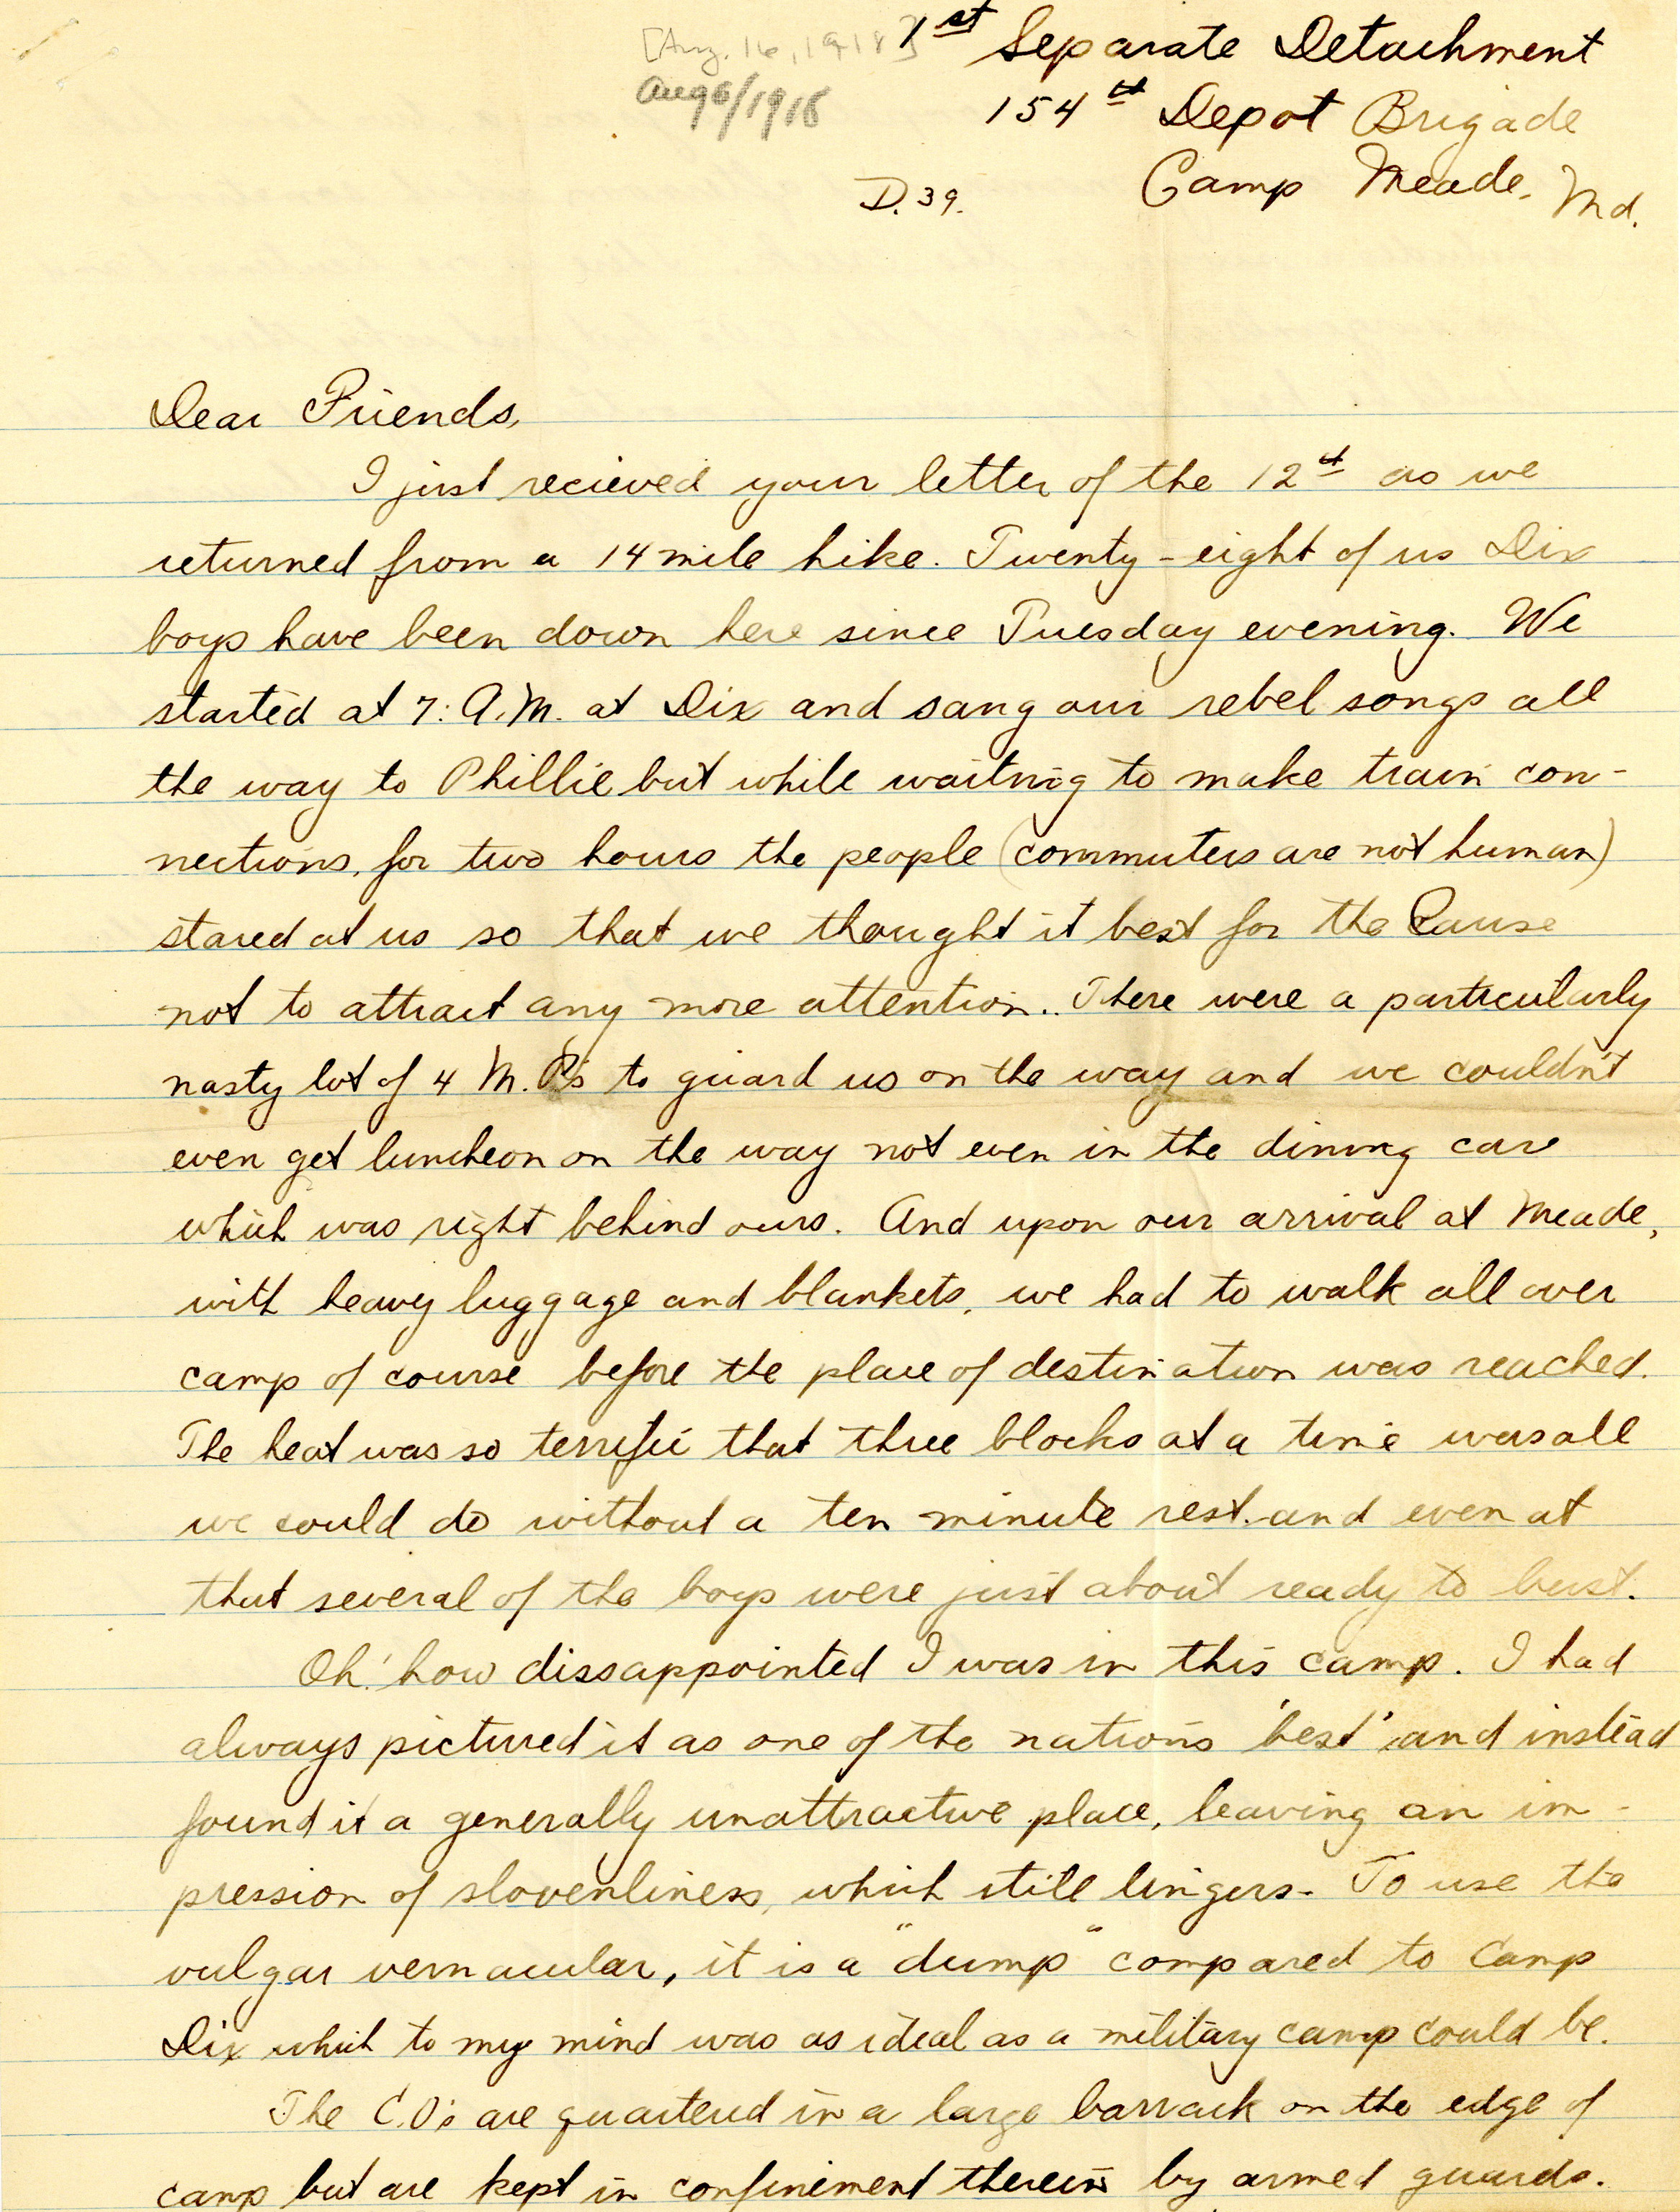 [Aug. 16, 1918]
Aug 6/1918
1st Separate Detachment
154th Depot Brigade
D. 39.
Camp Meade, Md.
Dear Friends,
I just recieved your letter of the 12th as we
returned from a 14 mile hike. Twenty-eight of us Dix
boys have been down here since Tuesday evening. We
started at 7: A.M. at Dix and sang our rebel songs all
the way to Phillie but while waiting to make train con-
nections, for two hours the people (commuters are not human)
stared at us so that we thought it best for the Cause
not to attract any more attention.. There were a particularly
nasty lot of 4 M.P.'s to guard us on the way and we couldn't
even get luncheon on the way not even in the dining car
which was right behind ours. And upon our arrival at Meade,
with heavy luggage and blankets, we had to walk all over
camp of course before the place of destination was reached.
The heat was so terrific that three blocks at a time was all
we could do without a ten minute rest. and even at
that several of the boys were just about ready to bust.
Oh! how dissappointed I was in this camp. I had
always pictured it as one of the nations 'best' and instead
found it a generally unattractive place, leaving an im-
pression of slovenliness, which still lingers. To use the
vulgar vernacular, it is a "dump" compared to Camp
Dix which to my mind was as ideal as a military camp could be.
The C.O's are quartered in a large barrack on the edge of
camp but are kept in confinement therein by armed guards.